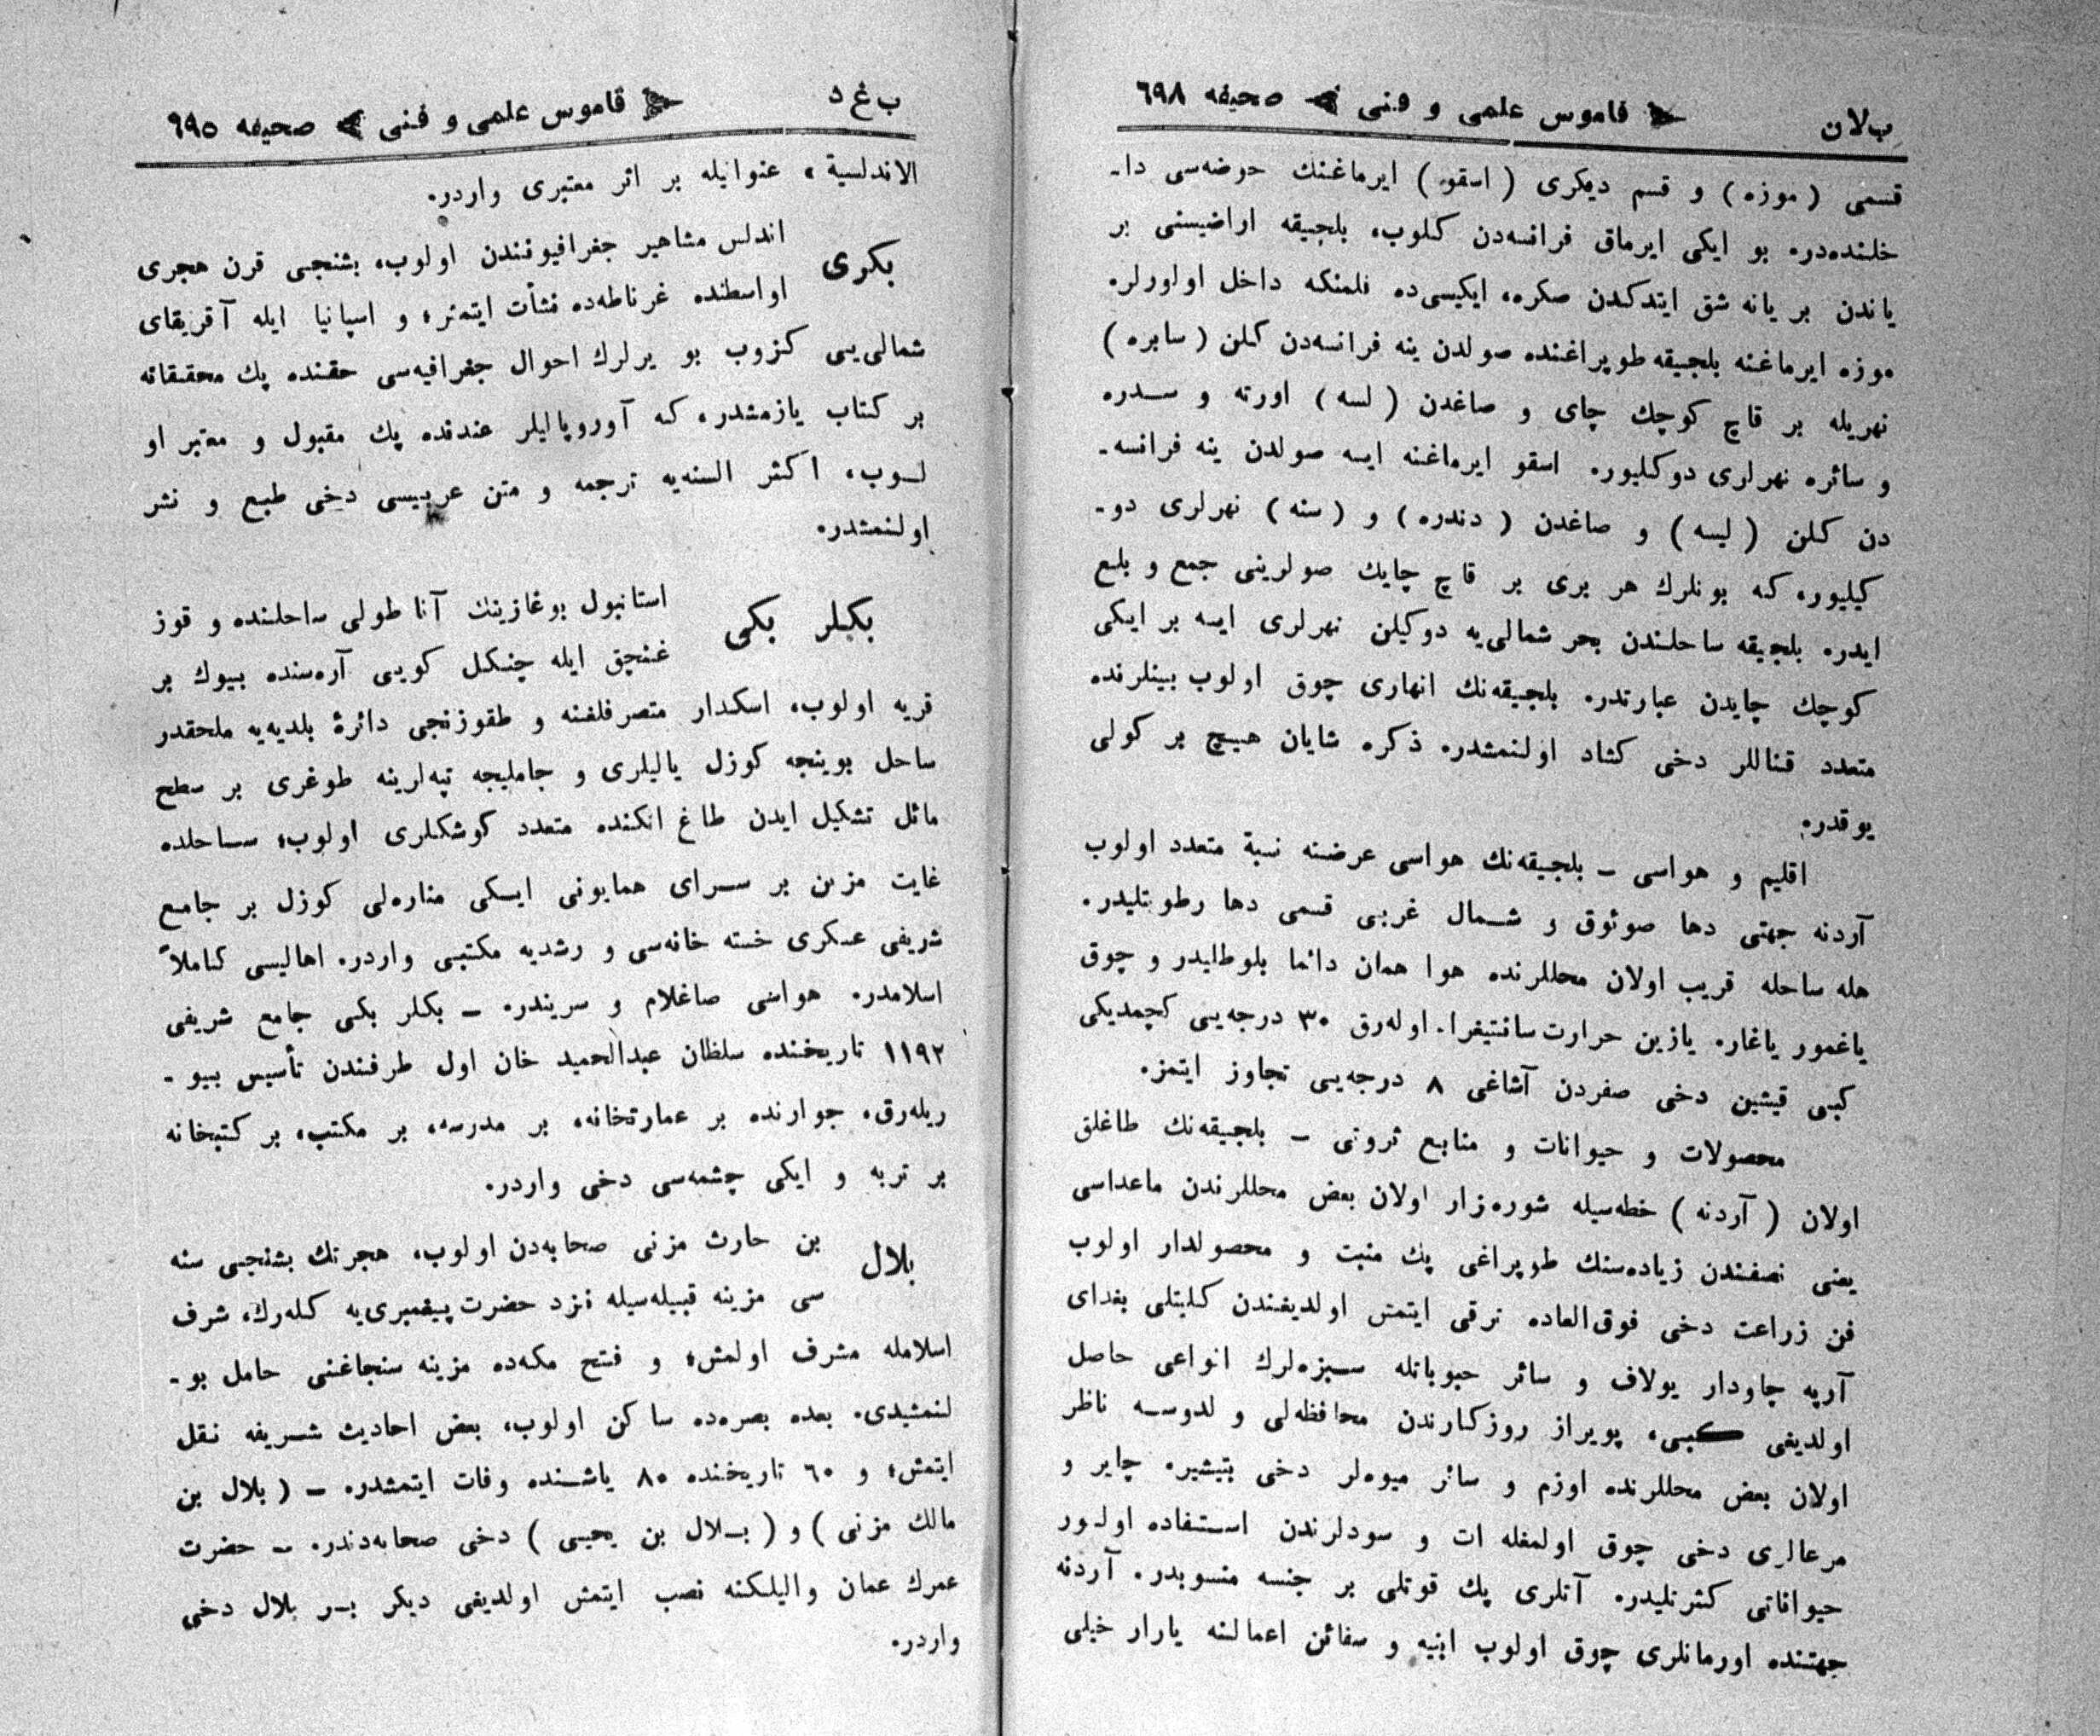 ب لان
قاموس علمی و فنی
صحیفه ٦٩٨
قسمی ( موزه ) و قسم دیكری ( اسقو ) ایرماغنك حوضه‌سی دا۔
خلنده‌در. بو ایكی ایرماق فرانسه‌دن كلوب، بلجیقه اراضیسنی بر
یاندن بر یانه شق ایتدكدن صكره، ایكیسی‌ده فلمنكه داخل اولورلر.
موزه ایرماغنه بلجیقه طوپراغنده صولدن ینه فرانسه‌دن كلن ( سابره )
نهریله بر قاچ كوچك چای و صاغدن ( لسه ) اورته و سدره
و سائره نهرلری دوكلیور. اسقو ایرماغنه ایسه صولدن ینه فرانسه۔
دن كلن ( لیسه ) و صاغدن ( دندره ) و ( سنه ) نهرلری دو۔
كیلیور، كه بونلرك هر بری بر قاچ چایك صولرینی جمع و بلع
ایدر. بلجیقه ساحلندن بحر شمالی‌یه دوكیلن نهرلری ایسه بر ایكی
كوچك چایدن عبارتدر. بلجیقه‌نك انهاری چوق اولوب بینلرنده
متعدد قناللر دخی كشاد اولنمشدر. ذكره شایان هیچ بر كولی
یوقدر.
اقلیم و هواسی ــ بلجیقه‌نك هواسی عرضنه نسبة متعدد اولوب
آردنه جهتی دها صوئوق و شمال غربی قسمی دها رطوبتلیدر.
هله ساحله قریب اولان محللرنده هوا همان دائما بلوطلیدر و چوق
یاغمور یاغار. یازین حرارت سانتیغرا. اوله‌رق ٣٠ درجه‌یی كچمدیكی
كبی قیشین دخی صفردن آشاغی ٨ درجه‌یی تجاوز ایتمز.
محصولات و حیوانات و منابع ثروتی ــ بلجیقه‌نك طاغلق
اولان ( آردنه ) خطه‌سیله شوره‌زار اولان بعض محللرندن ماعداسی
یعنی نصفندن زیاده‌سنك طوپراغی پك منبت و محصولدار اولوب
فن زراعت دخی فوق‌العاده ترقی ایتمش اولدیغندن كلیتلی بغدای
آرپه چاودار یولاف و سائر حبوباتله سبزه‌لرك انواعی حاصل
اولدیغی كبی، پویراز روزكارندن محافظه‌لی و لدوسه ناظر
اولان بعض محللرنده اوزم و سائر میوه‌لر دخی یتیشیر. چایر و
مرعالری دخی چوق اولمغله ات و سودلرندن استفاده اولور
حیواناتی كثرتلیدر. آتلری پك قوتلی بر جنسه منسوبدر. آردنه
جهتنده اورمانلری چوق اولوب ابنیه و سفائن اعمالنه یارار خیلی
ب غ د
قاموس علمی و فنی
صحیفه ٦٩٥
الاندلسیة » عنوانیله بر اثر معتبری واردر.
بكری
اندلس مشاهیر جغرافیوننندن اولوب، بشنجی قرن هجری
اواسطنده غرناطه‌ده نشأت ایتمش؛ و اسپانیا ایله آفریقای
شمالی‌یی كزوب بو یرلرك احوال جغرافیه‌سی حقنده پك محققانه
بر كتاب یازمشدر، كه آوروپالیلر عندنده پك مقبول و معتبر او
لوب، اكثر السنه‌یه ترجمه و متن عربیسی دخی طبع و نشر
اولنمشدر.
بكلر بكی
استانبول بوغازینك آناطولی ساحلنده و قوز
غنجق ایله چنكل كویی آره‌سنده بیوك بر
قریه اولوب، اسكدار متصرفلغنه و طقوزنجی دائرهٔ بلدیه‌یه ملحقدر
ساحل بوینجه كوزل یالیلری و چاملیجه تپه‌لرینه طوغری بر سطح
مائل تشكیل ایدن طاغ اتكنده متعدد كوشكلری اولوب؛ ساحلده
غایت مزین بر سرای همایونی ایكی مناره‌لی كوزل بر جامع
شریفی عسكری خسته خانه‌سی و رشدیه مكتبی واردر. اهالیسی كاملاً
اسلامدر. هواسی صاغلام و سریندر. ــ بكلر بكی جامع شریفی
١١٩٢ تاریخنده سلطان عبدالحمید خان اول طرفندن تأسیس بیو ۔
ریله‌رق، جوارنده بر عمارتخانه، بر مدرسه، بر مكتب، بر كتبخانه
بر تربه و ایكی چشمه‌سی دخی واردر.
بلال
بن حارث مزنی صحابه‌دن اولوب، هجرتك بشنجی سنه
سی مزینه قبیله‌سیله نزد حضرت پیغمبری‌یه كله‌رك، شرف
اسلامله مشرف اولمش؛ و فتح مكه‌ده مزینه سنجاغنی حامل بو۔
لنمشیدی. بعده بصره‌ده ساكن اولوب، بعض احادیث شریفه نقل
ایتمش؛ و ٦٠ تاریخنده ٨٠ یاشنده وفات ایتمشدر. ــ ( بلال بن
مالك مزنی ) و ( بلال بن یحیی ) دخی صحابه‌دندر. ــ حضرت
عمرك عمان والیلكنه نصب ایتمش اولدیغی دیكر بر بلال دخی
واردر.